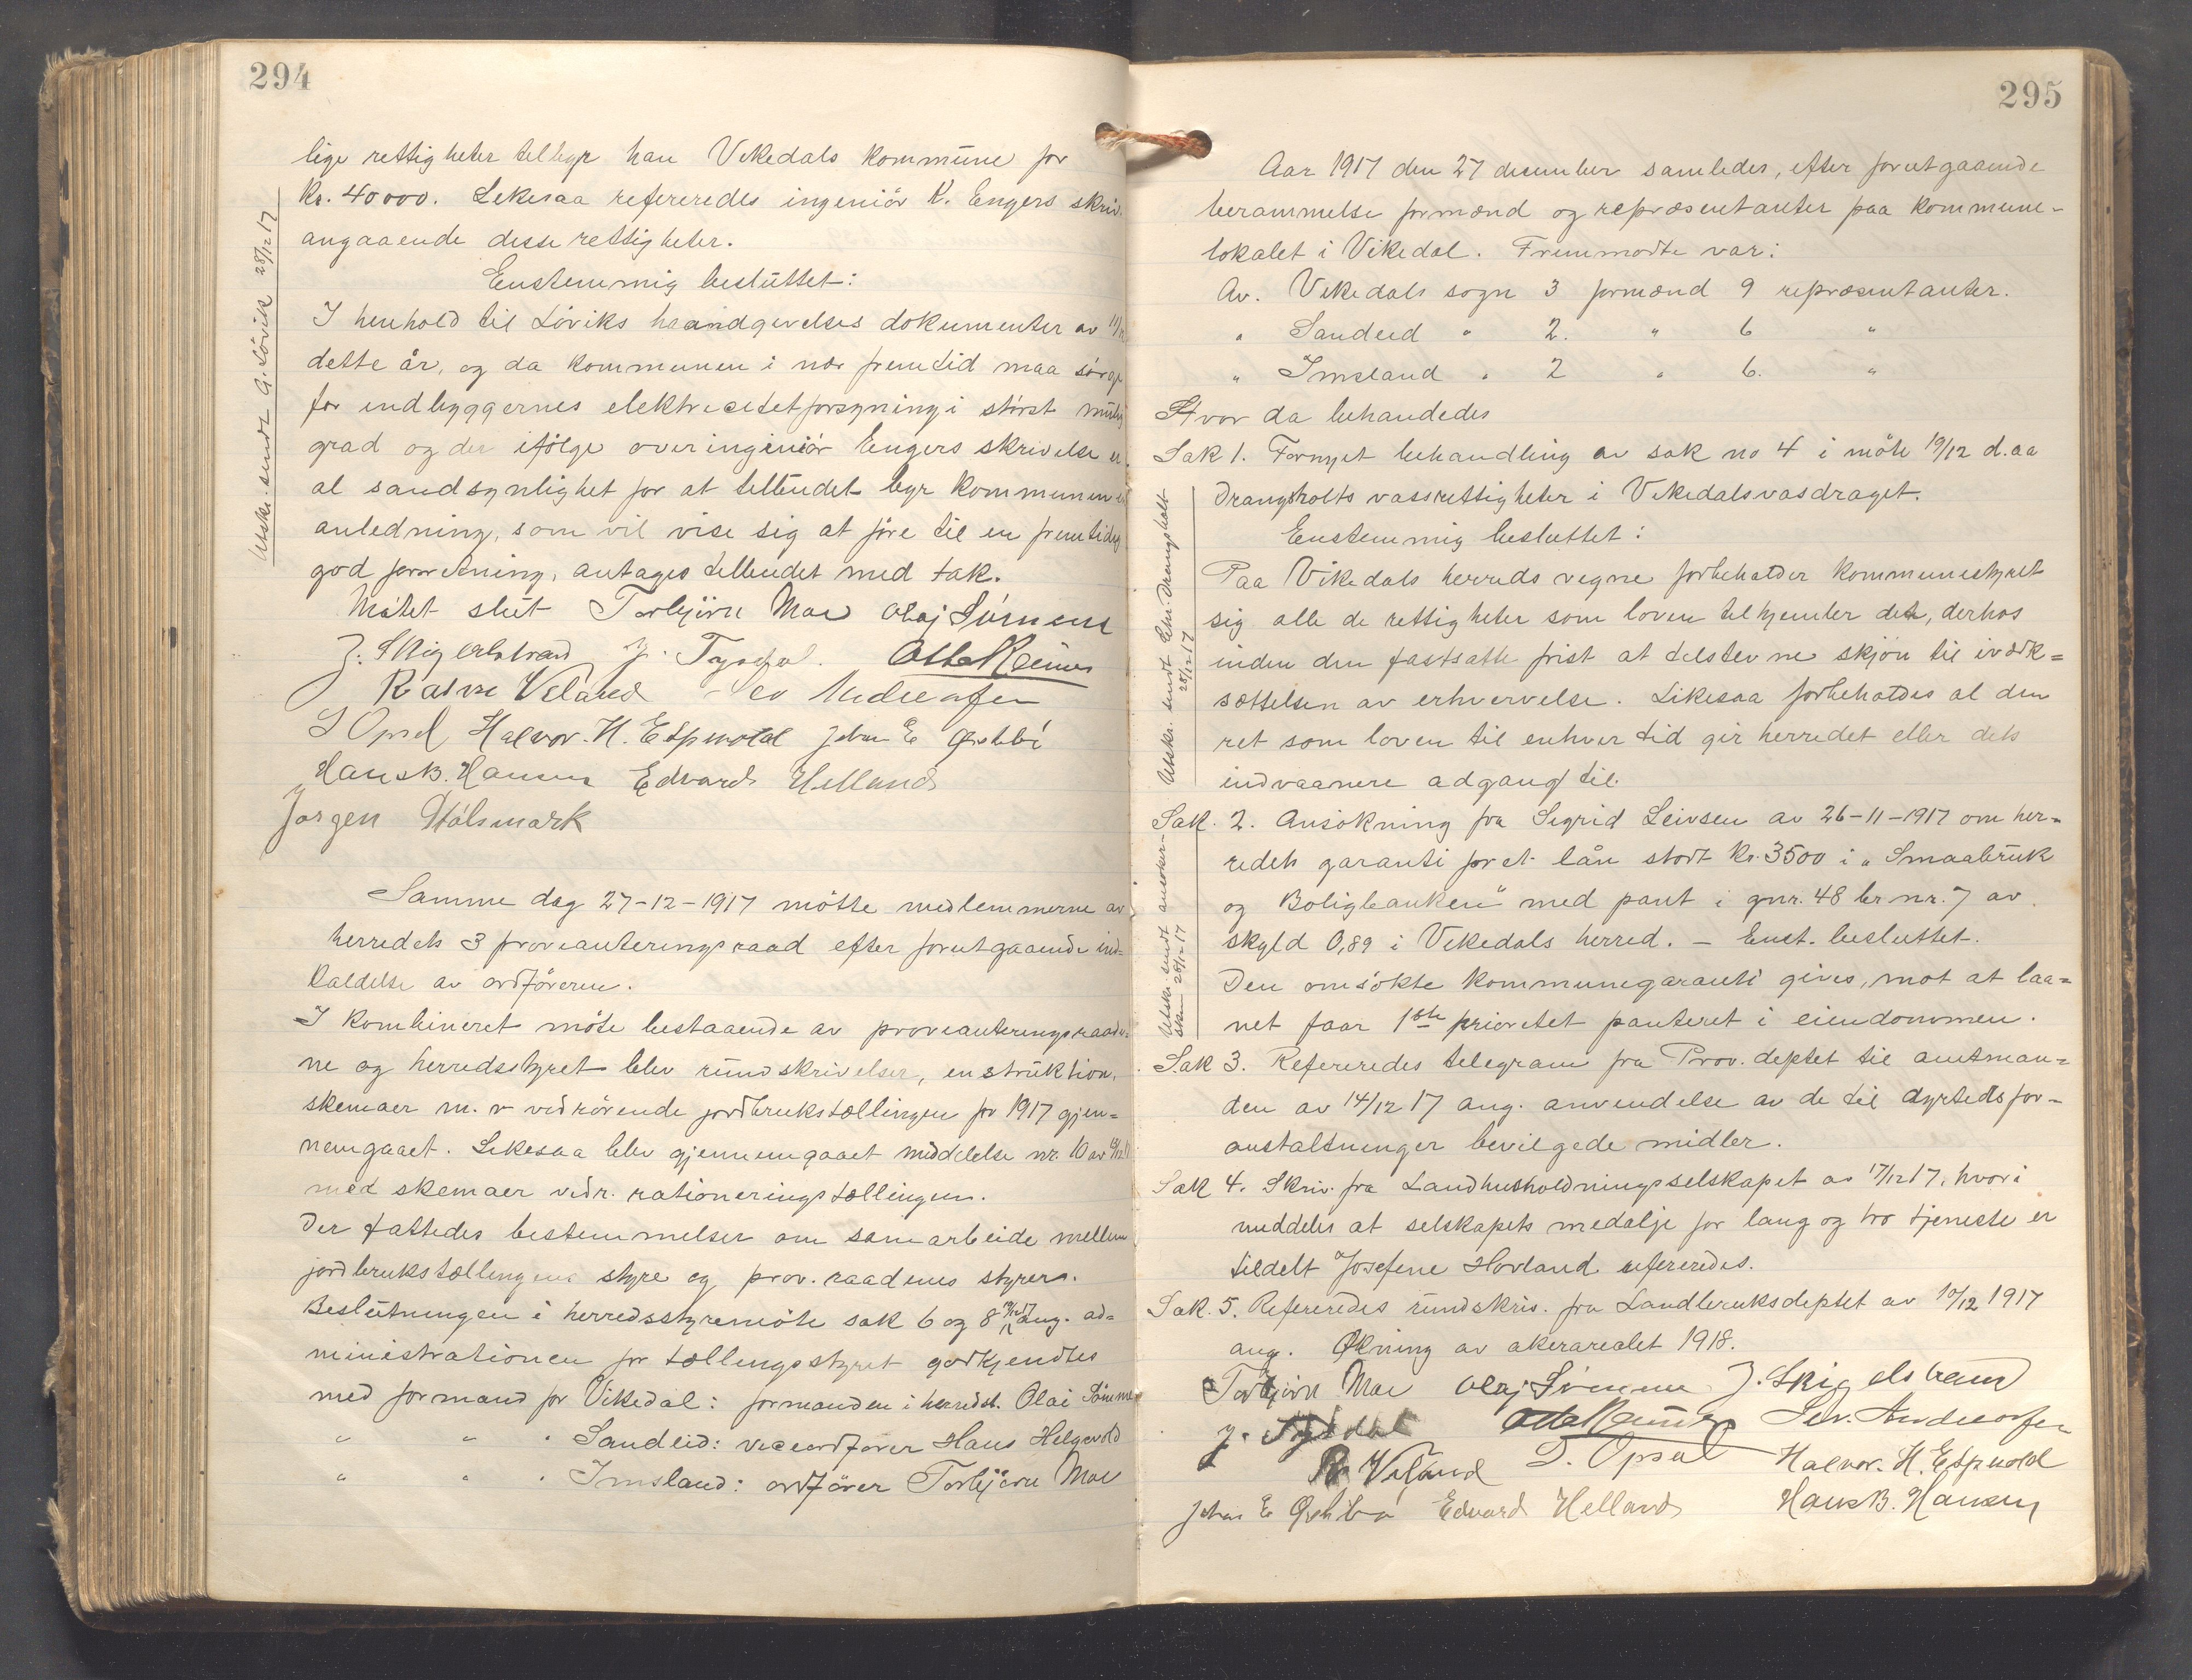 294
lige rettigheter tilbyr han Vikedals kommune for
kr. 40000. Likesaa refereredes ingeniör K. Engers skriv.
angaaende disse rettigheter.
Enstemmig besluttet:
I henhold til Löviks haandgivelses dokumenter av
dette år, og da kommunen i nær fremtid maa sörge
for indbyggernes elektricitetforsyning i störst mulig
grad og der ifölge overingeniör Engers skrivelse er
al sandsynlighet for at tilbudet byr kommunen en
anledning, som vil vise sig at före til en fremtidig
god forretning, antages tilbudet med tak.
Mötet slut Torbjörn Moe Olaj Sörnem
J. Skigelstrand J. Tysdal. Otto Reimer
Rasm Veland Sev Andreasen
S Opsal Halvor. H. Espevold Johan E Ørebbi
Hans B. Hansen Edvard Helland
Jørgen Stålsmark
Utskr. sendt G. Lövik 28/12 17
Samme dag 27-12-1917 mötte medlemmerne av
herredets 3 provianteringsraad efter forutgaaende ind=
kaldelse av ordföreren.
I kombineret möte bestaaende av provianteringsraade=
ne og herredsstyret blev rundskrivelser, instruktion,
skemaer m. v vedrörende jordbrukstællingen for 1917 gjen=
nemgaaet. Likesaa blev gjennemgaaet middelelse nr. 10 av
med skemaer vedr. rationeringstællingen.
Der fattedes bestemmelser om samarbeide mellem
jordbrukstællingens styre og prov. raadenes styrer.
Beslutningen i herredsstyremöte sak 6 og 8 ang. ad=
ministrationen for tællingsstyret godkjendtes
med formand for Vikedal: formanden i herredst. Olai Sömme
" " " Sandeid: viceordförer Hans Helgevold
" " " Imsland: ordförer Torbjörn Moe
295
Aar 1917 den 27 december samledes, efter forutgaaende
berammelse formænd og repræsentanter paa kommune-
lokalet i Vikedal. Fremmödte var:
Av. Vikedals sogn 3 formænd 9 repræsentanter.
" Sandeid " 2. " 6 "
" Imsland " 2 " 6. "
Hvor da behandedes
Sak 1. Fornyet behandling av sak no 4 i möte 19/12 d. aa
Drangsholts vassrettigheter i Vikedalsvasdraget.
Enstemmig besluttet:
Paa Vikedals herreds vegne forbeholder kommunestyret
sig alle de rettigheter som loven tilkjender det, derhos
inden den fastsatte frist at tilstevne skjön til iværk=
sættelsen av erhvervelse. Likesaa forbeholdes al den
ret som loven til enhver tid gir herredet eller dets
indvaanere adgang til.
Utskr. sendt Elm. Drangsholt
28/12-17
Sak. 2. Ansökning fra Sigrid Leivsen av 26-11-1917 om her=
redets garanti for et lån stort kr. 3500 i „Smaabruk
og Boligbanken" med pant i gnr. 48 br nr. 7 av
skyld 0,89 i Vikedals herred. - Enst. besluttet.
Den omsökte kommunegaranti gives, mot at laa=
net faar 1ste prioritet panteret i eiendommen.
Utskr. sendt ansöker-
sken 28/12-17
Sak 3. Refereredes telegram fra Prov. deptet til amtman=
den av 14/12 17 ang. anvendelse av de til dyrtidsfor=
anstaltninger bevilgede midler.
Sak 4. Skriv. fra Landhusholdningsselskapet av 17/12 17, hvori
meddeles at selskapets medalje for lang og tro tjeneste er
tildelt Josefine Hovland refereredes.
Sak. 5. Refereredes rundskriv. fra Landbruksdeptet av 10/12 1917
ang. Økning av akerarealet 1918.
Torbjörn Moe Olaj Sörnem J. Skigelstrand
J. Tysdal Otto Reimer Sev. Andreasen
R Veland S. Opsal Halvor. H. Espevold
Johan E Ørebbi Edvard Helland Hans B. Hansen